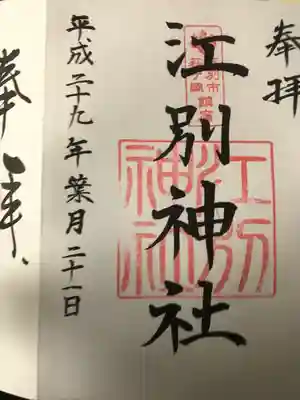 奉拝
江別神社
江別神社
平成二十九年葉月二十一日
奉拝